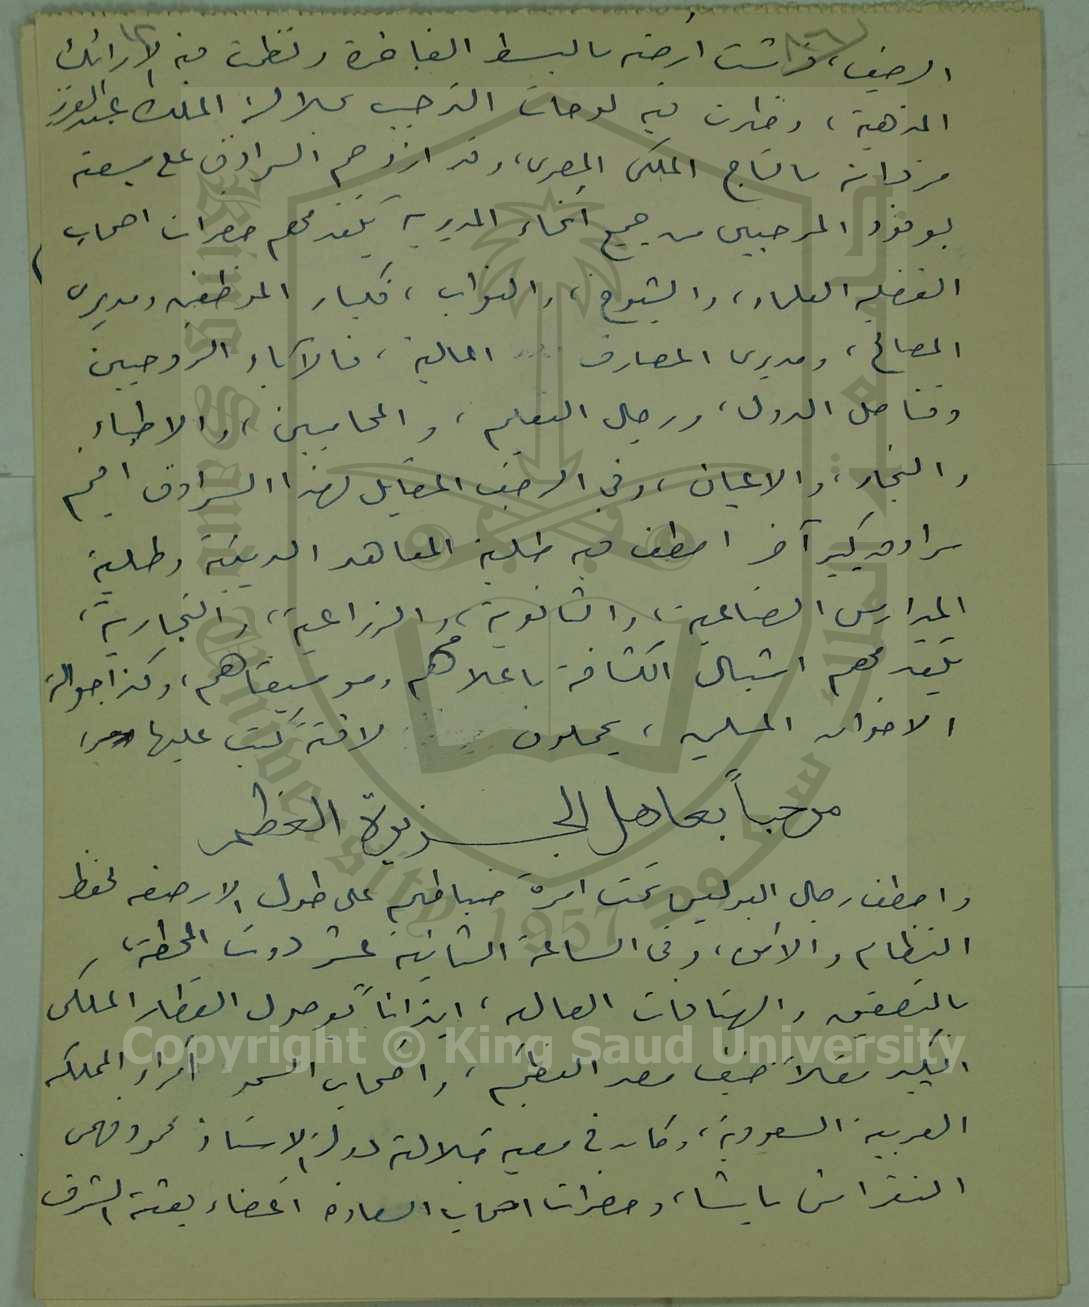 الرصيف، فرشت أرضه بالبسط الفاخرة ونظمت فيه الارائك
المذهبة، وخطرت فيه لوحات الترحيب بجلالة الملك عبدالعزيز
مزدانة بالتاج الملكى المصرى، وقد ازدحم السرادق على سعته
بوفود المرحبين من جميع أنحاء المديرية يتقدمهم حضرات اصحاب
الفضيلة العلماء، والشيوخ، والنواب، فكبار الموظفين ومديرى
المصالح، ومديرى المصارف المالية، فالآباء الروحيين
وقناصل الدول، ورجال التعليم، والمحاميين، والاطباء
والتجار، والاعيان، وفي الرصيف المقابل لهذا السرادق أقيم
سرادق كبير آخر اصطف فيه طلبة المعاهد الدينية وطلبة
المدارس الصناعية، والثانوية، والزراعية، والتجارية،
يتقدمهم اشبال الكشافة باعلامهم وموسيقاهم، وكذا جوالة
الاخوان المسلمين، يحملون لافتة كتب عليها
مرحباً بعاهل الجزيرة العظيم
واصطف رجال البوليس تحت امرة ضباطهم على طول الارصفه لحفظ
النظام والأمن، وفى الساعة الثانية عشر دوت المحطة،
بالتصفيق والهتافات العاليه، ايذاناً بوصول القطار الملكى
الكبير مقلاً ضيف مصر العظيم، واصحاب السمو أمراء المملكه
العربية السعودية، وكان فى معية جلالته دولة الاستاذ محمود فهمى
النقراشى باشا، وحضرات اصحاب السعادة أعضاء بعثة الشرف
Copyright © King Saud University
1957